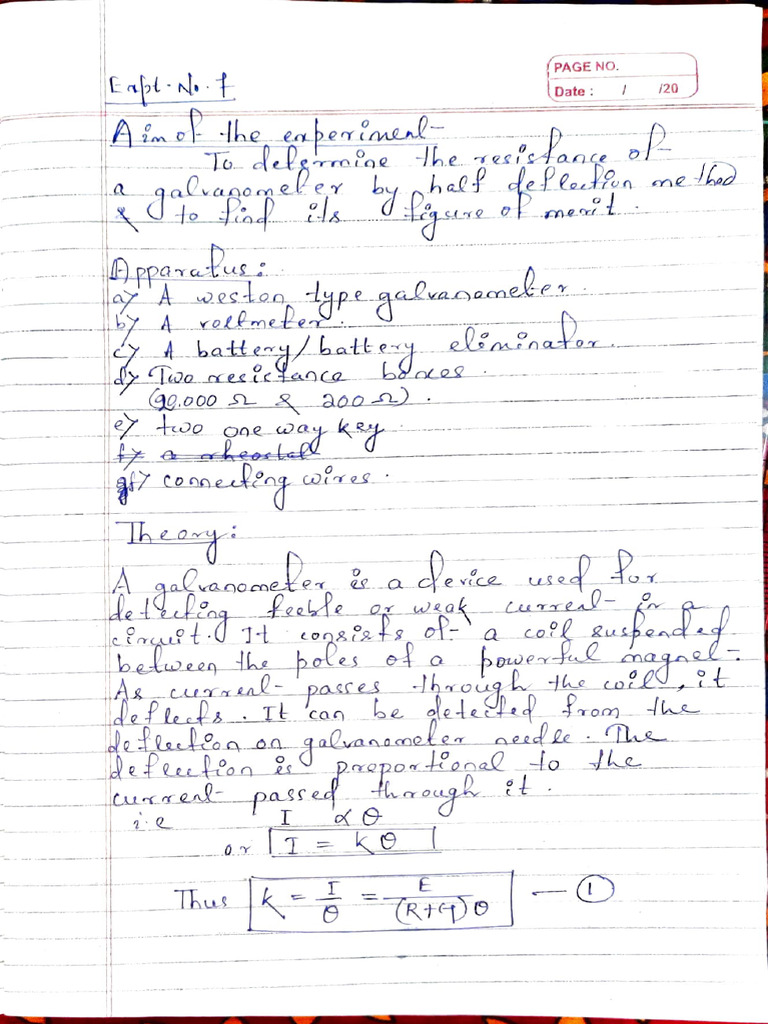 Expt. No. 7
PAGE NO.
Date : / /20
Aim of the experiment-
To determine the resistance of
a galvanometer by half deflection method
& to find its figure of merit.
Apparatus :
a) A weston type galvanometer.
b) A voltmeter.
c) A battery/battery eliminator.
d) Two resistance boxes.
(90.000 Ω & 200 Ω).
e) two one way key
f) a rheostat
f) connecting wires.
Theory :
A galvanometer is a device used for
detecting feeble or weak current in a
circuit. It consists of a coil suspended
between the poles of a powerful magnet.
As current passes through the coil, it
deflects. It can be detected from the
deflection on galvanometer needle. The
deflection is proportional to the
current passed through it.
i.e I ∝ θ
or I = kθ
Thus k = I/θ = E/(R+G)θ — ①